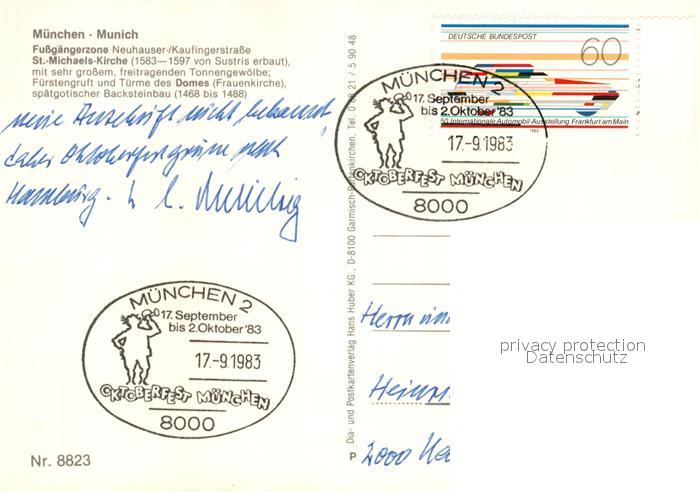 München - Munich
Fußgängerzone Neuhauser-/Kaufingerstraße
St.-Michaels-Kirche (1583—1597 von Sustris erbaut),
mit sehr großem, freitragenden Tonnengewölbe;
Fürstengruft und Türme des Domes (Frauenkirche),
spätgotischer Backsteinbau (1468 bis 1488)
meine Anschrift nicht bekannt,
daher Oktoberfestgrüsse nach
Hamburg.
DEUTSCHE BUNDESPOST
60
50 Internationale Automobil-Ausstellung Frankfurt am Main
1983
MÜNCHEN 2
17. September
bis 2. Oktober '83
17.-9.1983
OKTOBERFEST MÜNCHEN
8000
MÜNCHEN 2
17. September
bis 2. Oktober '83
17.-9.1983
OKTOBERFEST MÜNCHEN
8000
P Dia- und Postkartenverlag Hans Huber KG., D-8100 Garmisch-Partenkirchen, Tel. 21 / 5 90 48
Herrn
privacy protection
Datenschutz
2000
Nr. 8823